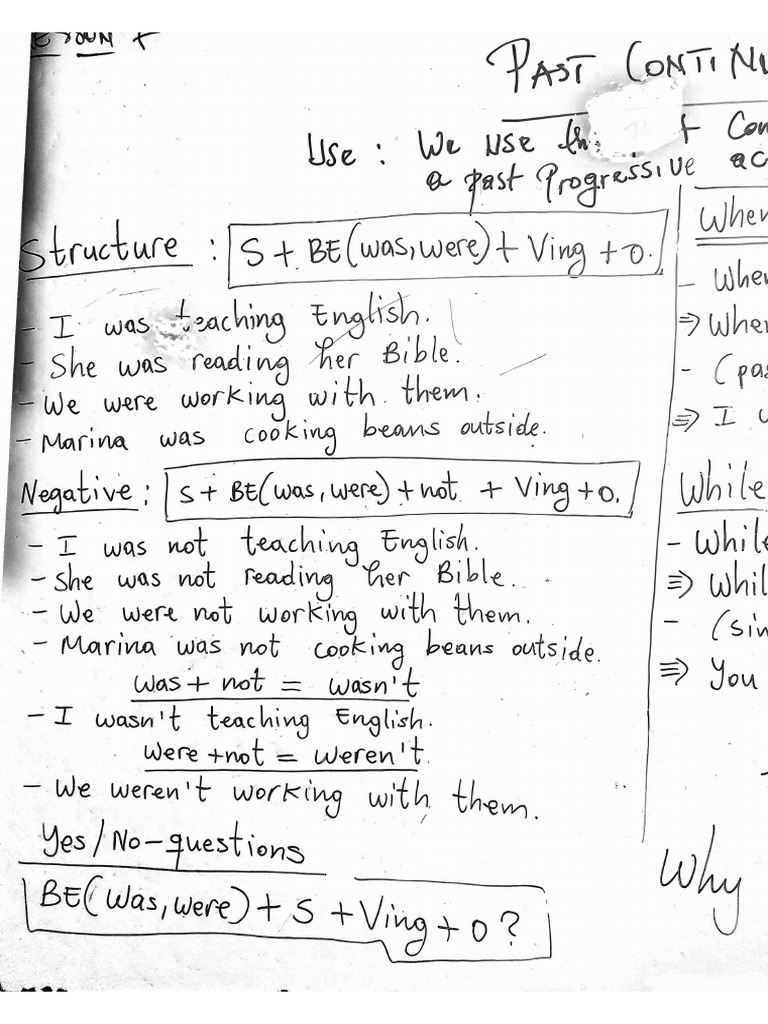 PAST CONTINU
Use : We use the Past Con
a past Progressive ac
Structure : S + BE(was, were) + Ving + O.
- I was teaching English.
- She was reading her Bible.
- We were working with them.
- Marina was cooking beans outside.
Negative : S + BE(was, were) + not + Ving + O.
- I was not teaching English.
- She was not reading her Bible.
- We were not working with them.
- Marina was not cooking beans outside.
was + not = wasn't
- I wasn't teaching English.
were + not = weren't
- We weren't working with them.
Yes/No-questions
BE(Was, were) + S + Ving + O ?
When
- When
⇒ When
- (pas
⇒ I w
While
- While
⇒ Whil
- (sin
⇒ You
Why